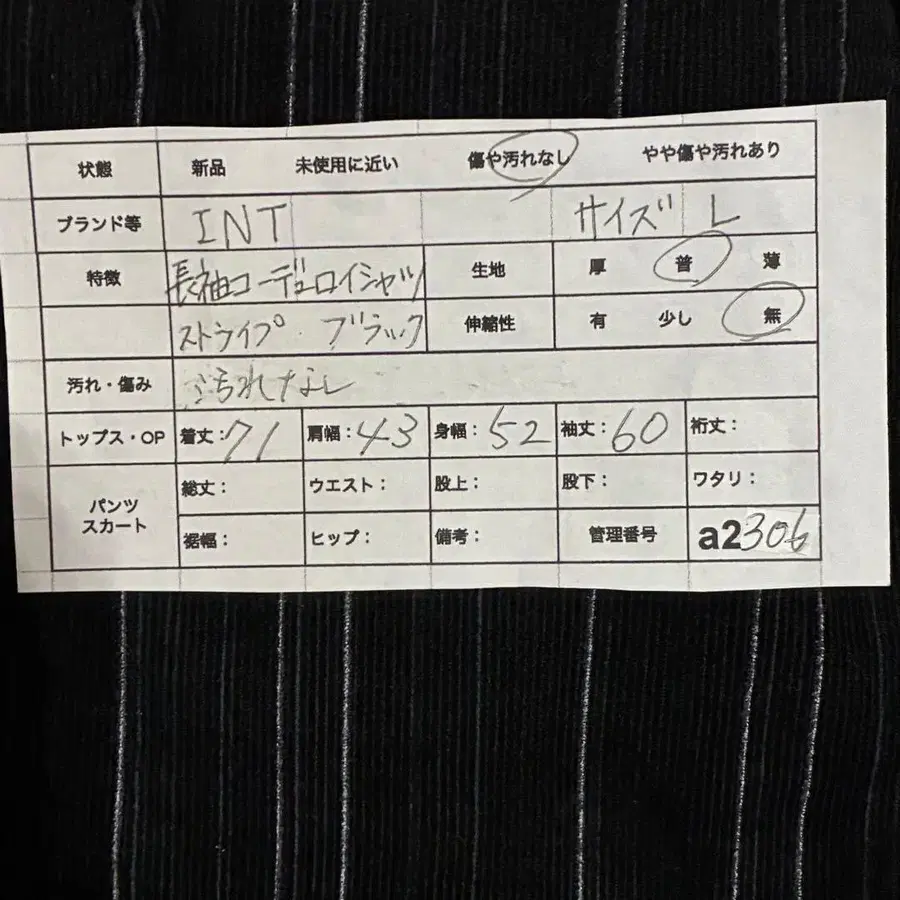 状態 新品 未使用に近い 傷や汚れなし やや傷や汚れあり
ブランド等 INT サイズ L
特徴 長袖コーデュロイシャツ 生地 厚 普 薄
ストライプ ブラック 伸縮性 有 少し 無
汚れ・傷み 汚れなし
トップス・OP 着丈:71 肩幅:43 身幅:52 袖丈:60 裄丈:
パンツ スカート 総丈: ウエスト: 股上: 股下: ワタリ:
裾幅: ヒップ: 備考: 管理番号 a2306